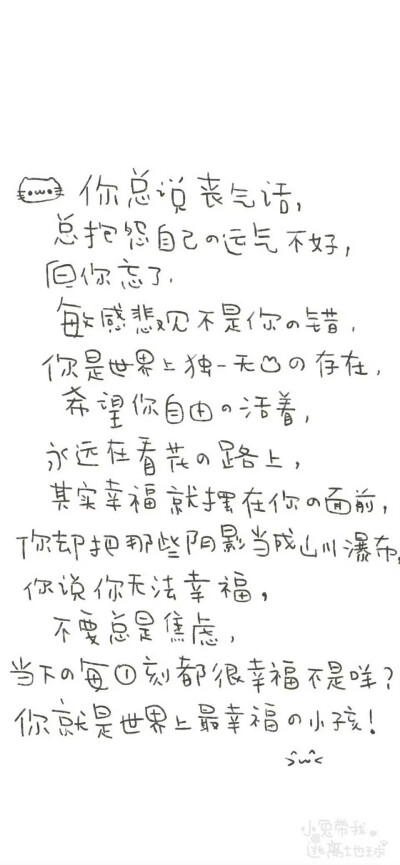 你总说丧气话,
总抱怨自己の运气不好,
但你忘了.
敏感悲观不是你の错,
你是世界上独一无二の存在,
希望你自由の活着,
永远在看花の路上,
其实幸福就摆在你の面前,
你却把那些阴影当成山川瀑布,
你说你无法幸福,
不要总是焦虑,
当下の每①刻都很幸福不是咩?
你就是世界上最幸福の小孩!
小兔带我
逃离地球